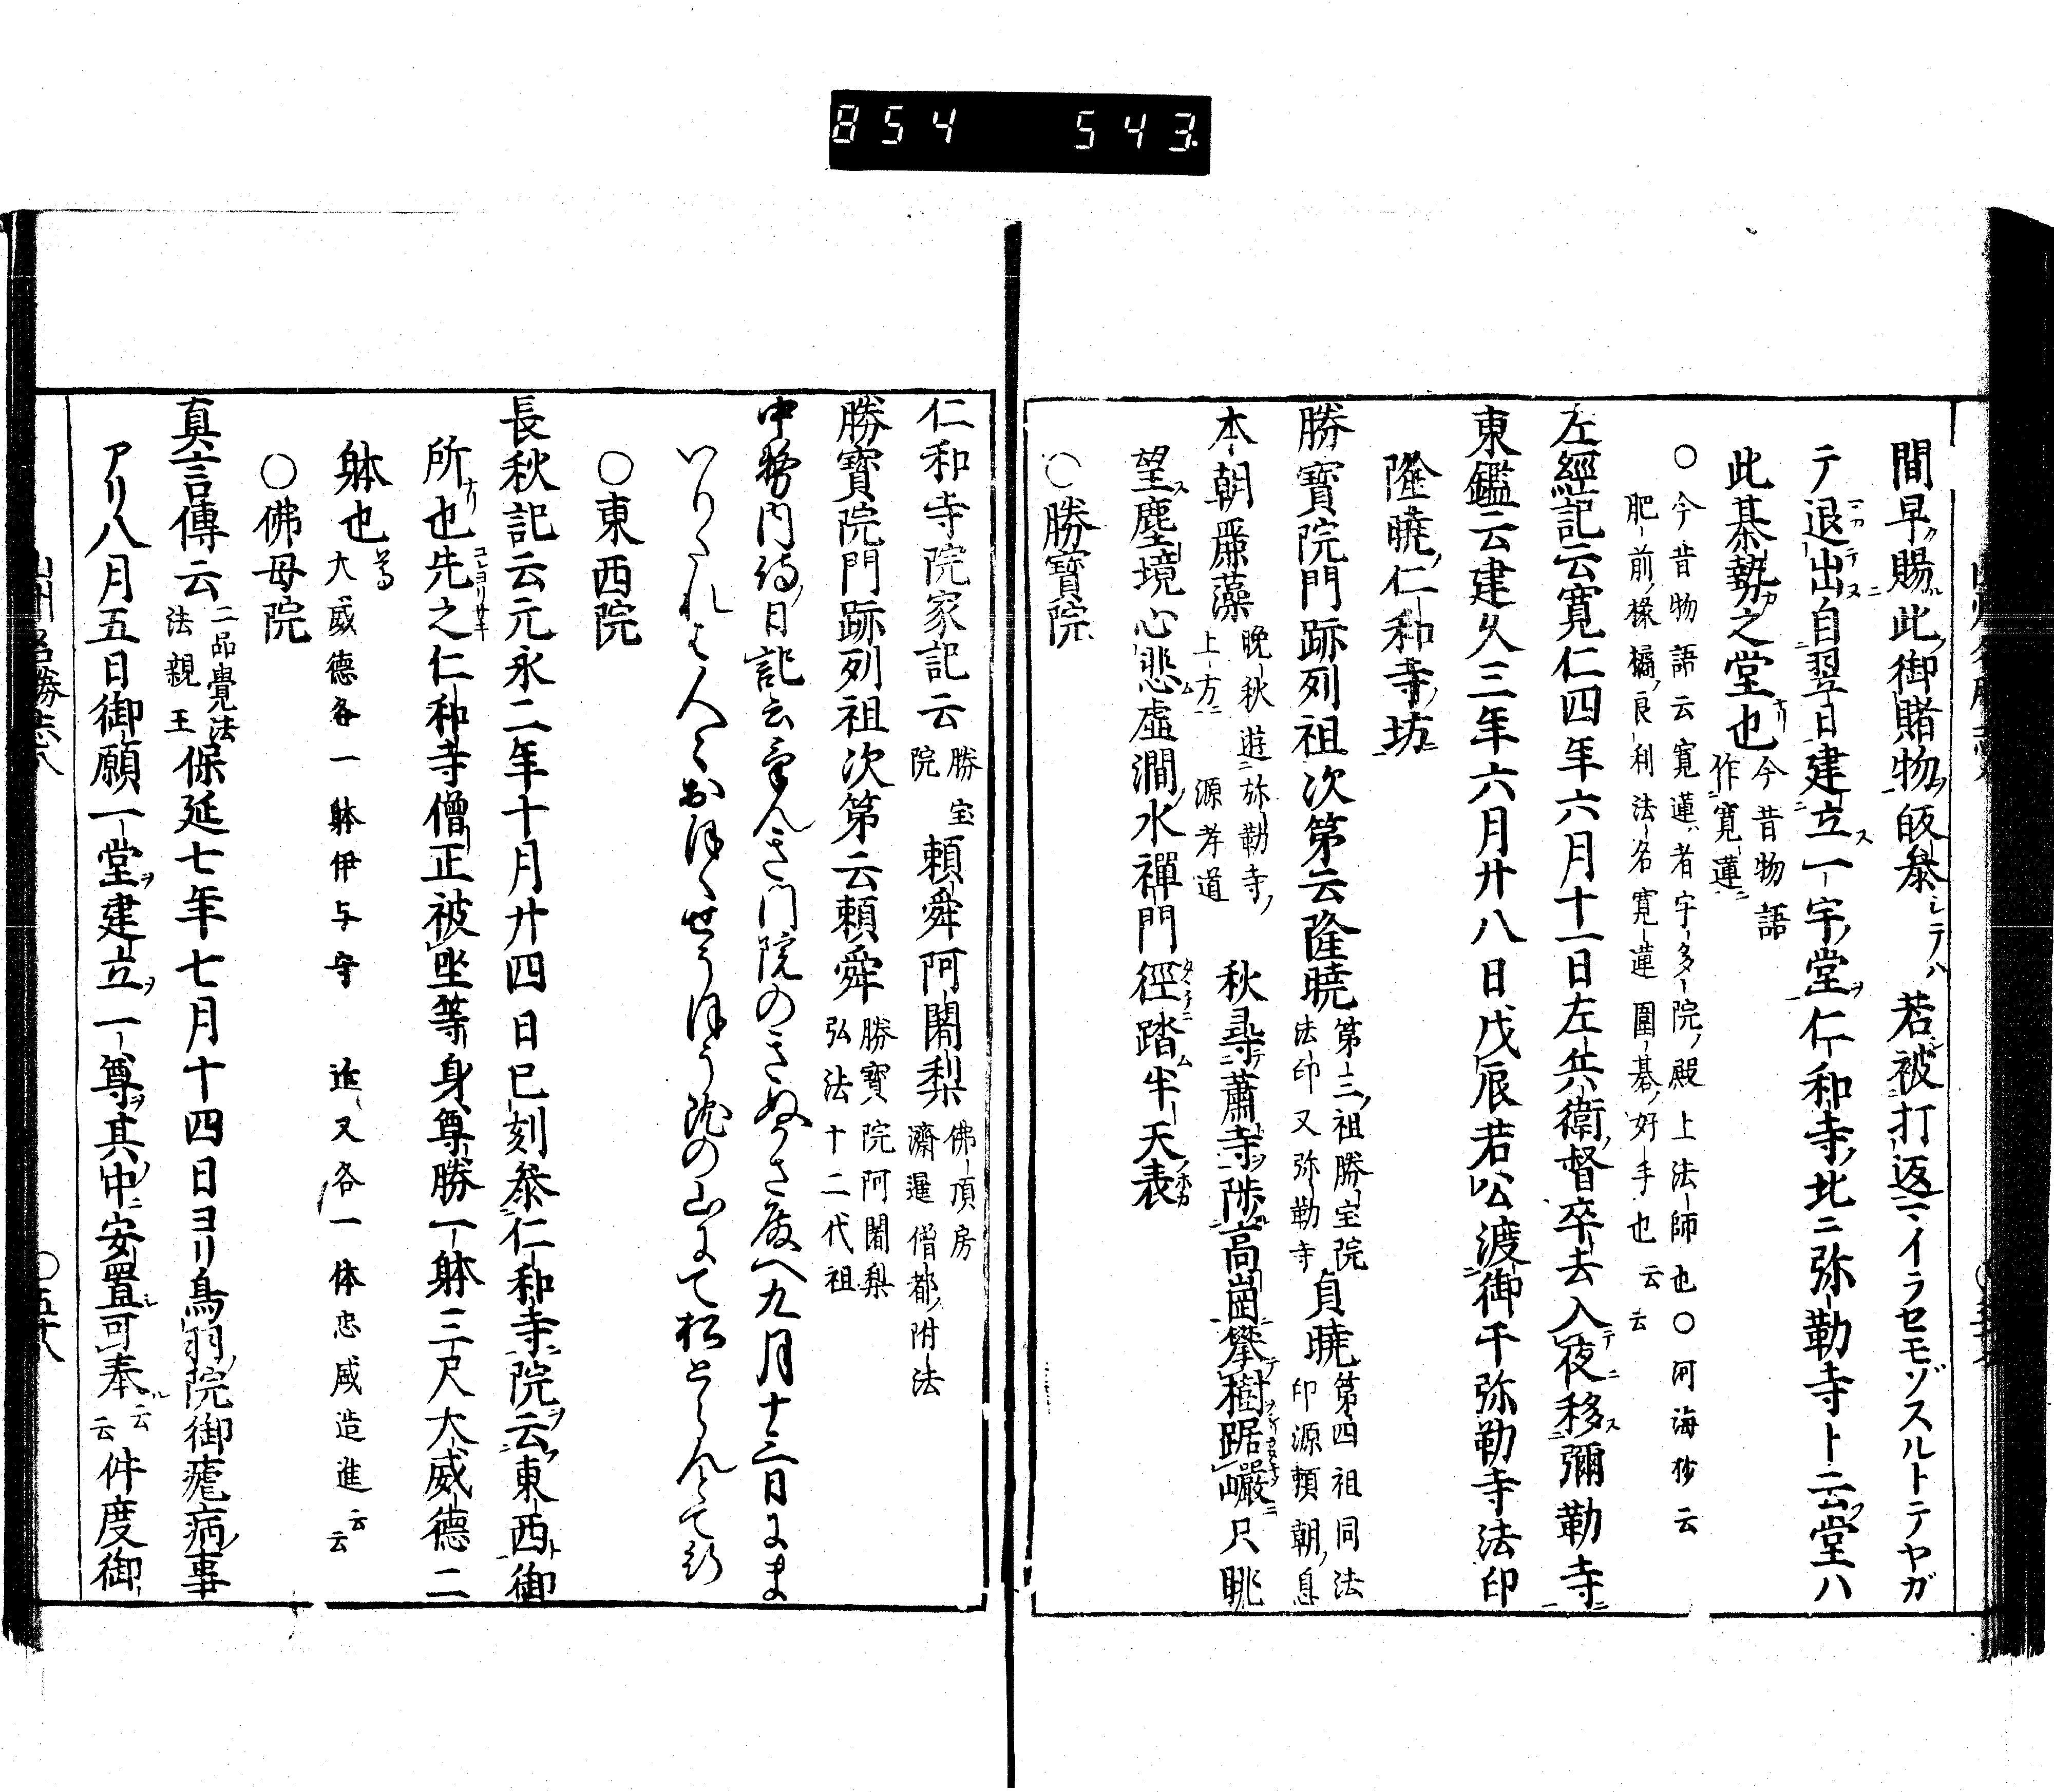 854 543
間早賜此御賭物皈參シテハ若被打返マイラセモゾスルトテヤガ
テ退出自翌日建立一宇堂仁和寺北ニ弥勒寺ト云堂ハ
此碁勢之堂也今昔物語
作寛蓮
○今昔物語云寛蓮者宇多院殿上法師也○河海抄云
肥前掾橘良利法名寛蓮圍碁好手也云云
左經記云寛仁四年六月十一日左兵衛督卒去入夜移彌勒寺
東鑑云建久三年六月廿八日戊辰若公渡御于弥勒寺法印
隆曉仁和寺坊
勝寶院門跡列祖次第云隆曉第三祖勝宝院
法印又弥勒寺貞曉第四祖同法
印源頼朝息
本朝麗藻晩秋遊弥勒寺
上方 源孝道 秋尋蕭寺陟高崗攀樹踞巖只眺
望塵境心悲虛澗水禪門徑踏半天表
○勝寶院
仁和寺院家記云勝宝
院頼舜阿闍梨佛頂房
濟暹僧都附法
勝寶院門跡列祖次第云頼舜勝寶院阿闍梨
弘法十二代祖
中務内侍日記云 門院の 九月十三日にま
いりたれは人〱おほく の山にて松
○東西院
長秋記云元永二年十月廿四日巳刻參仁和寺院云東西御
所也先之仁和寺僧正被坐等身尊勝一躰三尺大威德二
躰也大威德各一躰伊与守 進又各一体忠盛造進云云
○佛母院
真言傳云二品覺法
法親王保延七年七月十四日ヨリ鳥羽院御瘧病事
アリ八月五日御願一堂建立一尊其中安置可奉云云件度御
山州名勝志八 ○五十八